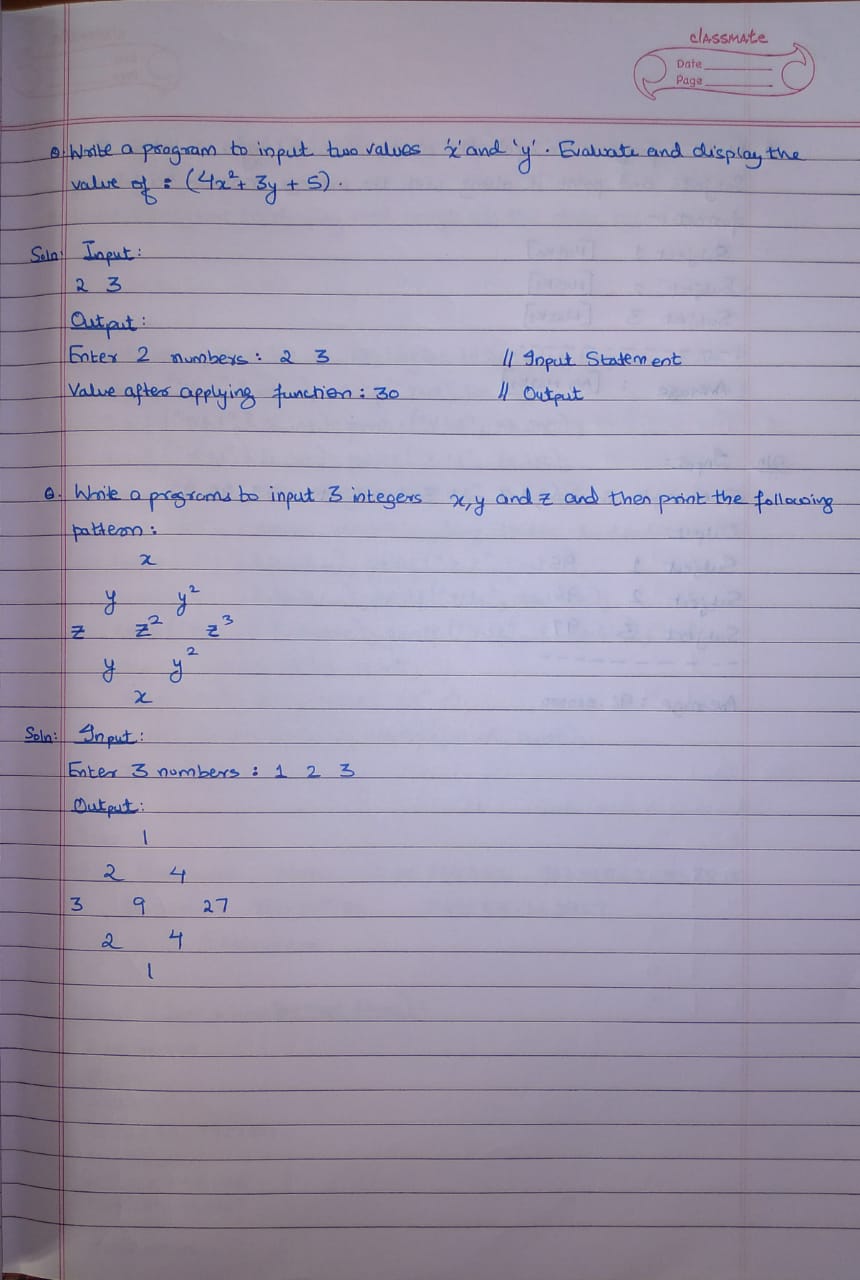 classmate
Date
Page
Q. Write a program to input two values 'x' and 'y'. Evaluate and display the
value of : (4x²+ 3y + 5).
Soln: Input:
2 3
Output:
Enter 2 numbers: 2 3 // Input Statement
Value after applying function: 30 // Output
Q. Write a programs to input 3 integers x, y and z and then print the following
pattern:
x
y y²
z z² z³
y y²
x
Soln: Input:
Enter 3 numbers : 1 2 3
Output:
1
2 4
3 9 27
2 4
1